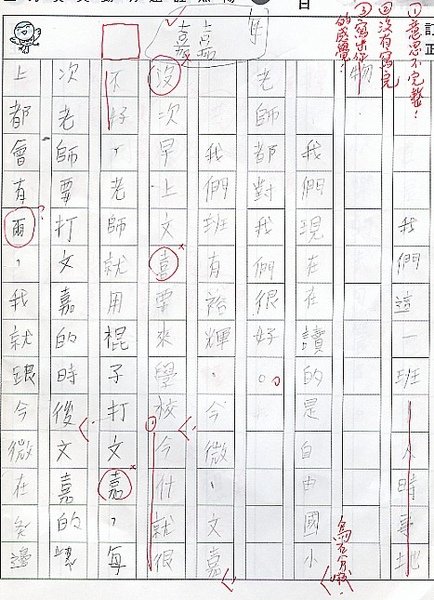 訂正
日
①意思不完整!
②沒有寫完
③寫出你
的感覺!
我們這一班人時事地
物
我們現在在讀的是自由國小
老師都對我們很好。
我們班有裕輝、今微、文嘉
沒次早上文嘉要來學校今什就很
不好,老師就用棍子打文嘉,每
次老師要打文嘉的時後文嘉的
上都會有雨,我就跟今微在 邊